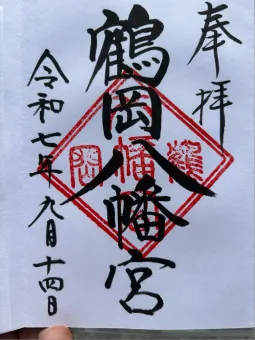 奉拝
鶴岡八幡宮
令和七年九月十四日